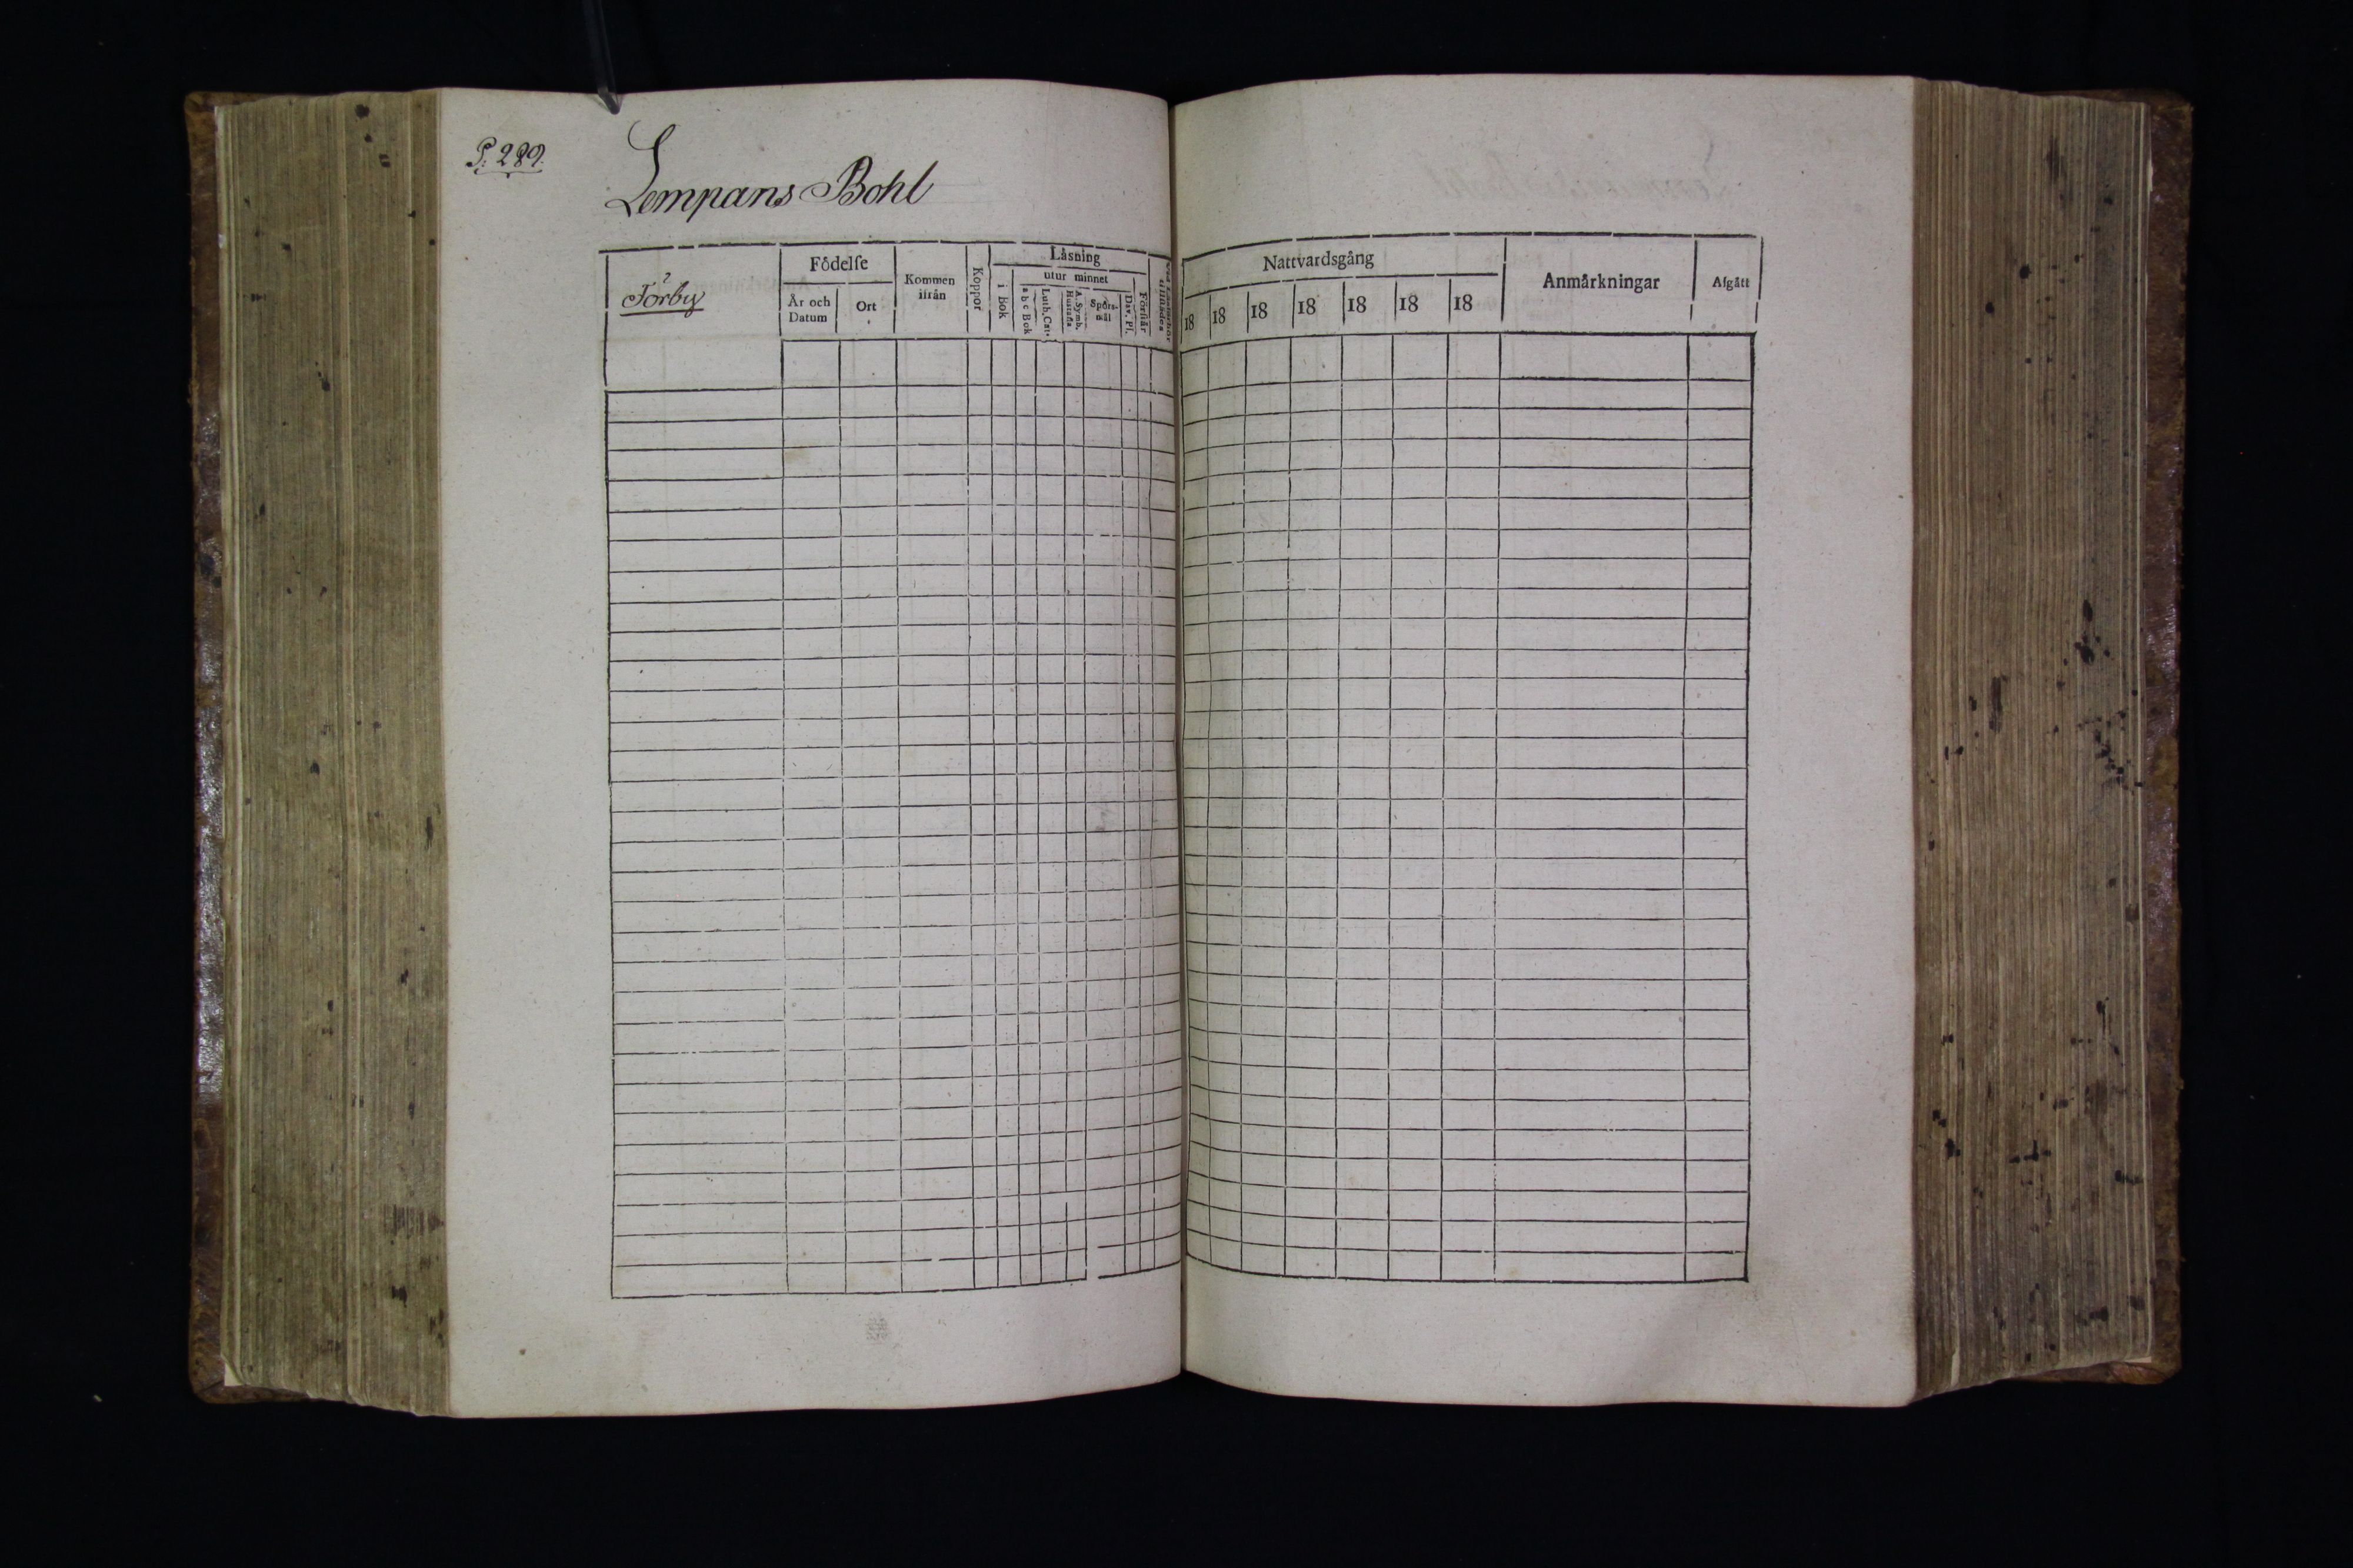 P. 289.
Lempans Bohl
Förby
Födelse
År och Datum
Ort
Kommen ifrån
Koppor
Läsning
i Bok
utur minnet
a b c Bok
Luth. Cat.
A. Symb. Hustafla
Spörsmål
Dav. Ps.
Förstår
Nattvardsgång
18 18 18 18 18 18 18
Anmärkningar
Afgått